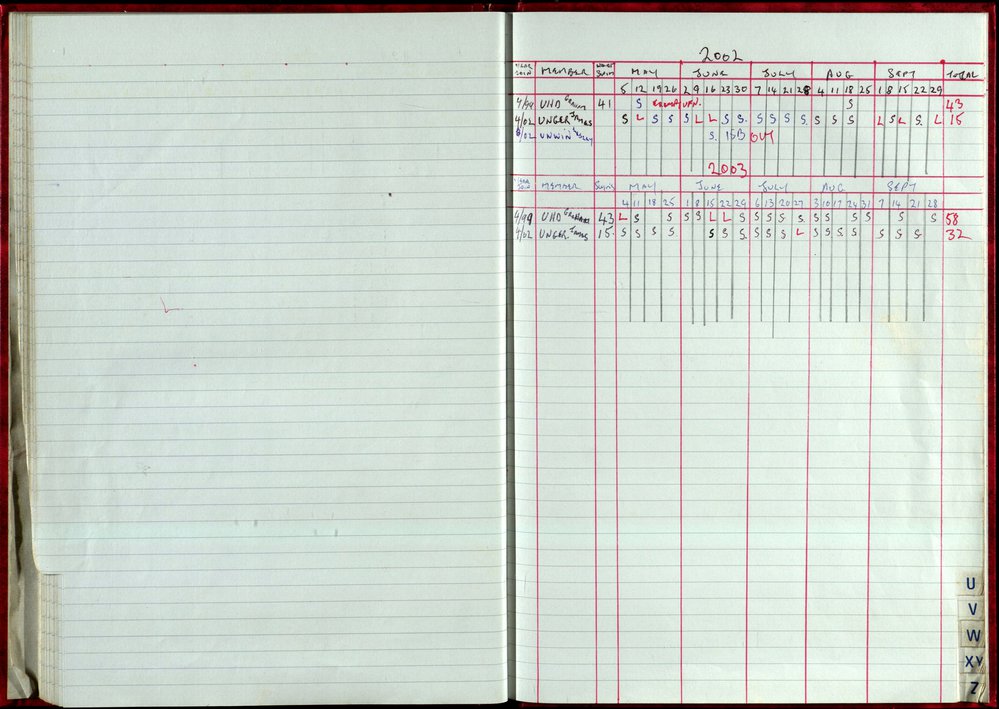 2002
YEAR JOIN MEMBER SWIM MAY JUNE JULY AUG SEPT TOTAL
5 12 19 26 2 9 16 23 30 7 14 21 28 4 11 18 25 1 8 15 22 29
4/99 UHD GRAHAM 41 S S 43
4/02 UNGER JAMES S L S S S L L S S. S S S S S S S L S L S. L 15
6/02 UNWIN S. OUT
2003
YEAR JOIN MEMBER SWIMS MAY JUNE JULY AUG SEPT
4 11 18 25 1 8 15 22 29 6 13 20 27 3 10 17 24 31 7 14 21 28
4/99 UHD GRAHAM 43 L S S S S L L S S S S S. S S S S S S 58
4/02 UNGER JAMES 15 S S S S S S S. S S S L S S S S S S S 32
U
V
W
XY
Z